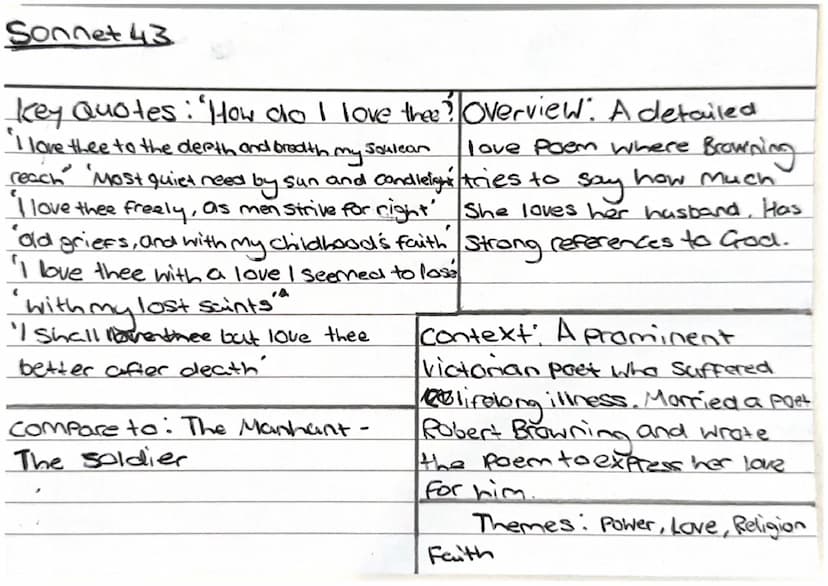 Sonnet 43
Key Quotes: 'How do I love thee?'
'I love thee to the depth and bredth my soul can
reach' 'Most quiet need by sun and candlelight'
'I love thee freely, as men strive for right'
'old griefs, and with my childhood's faith'
'I love thee with a love I seemed to lose'
'with my lost saints'
'I shall but love thee
better after death'
Overview: A detailed
love poem where Browning
tries to say how much
She loves her husband. Has
Strong references to God.
Context: A prominent
Victorian poet who suffered
lifelong illness. Married a poet
Robert Browning and wrote
the poem to express her love
for him.
Compare to: The Manhunt -
The Soldier
Themes: Power, Love, Religion
Faith